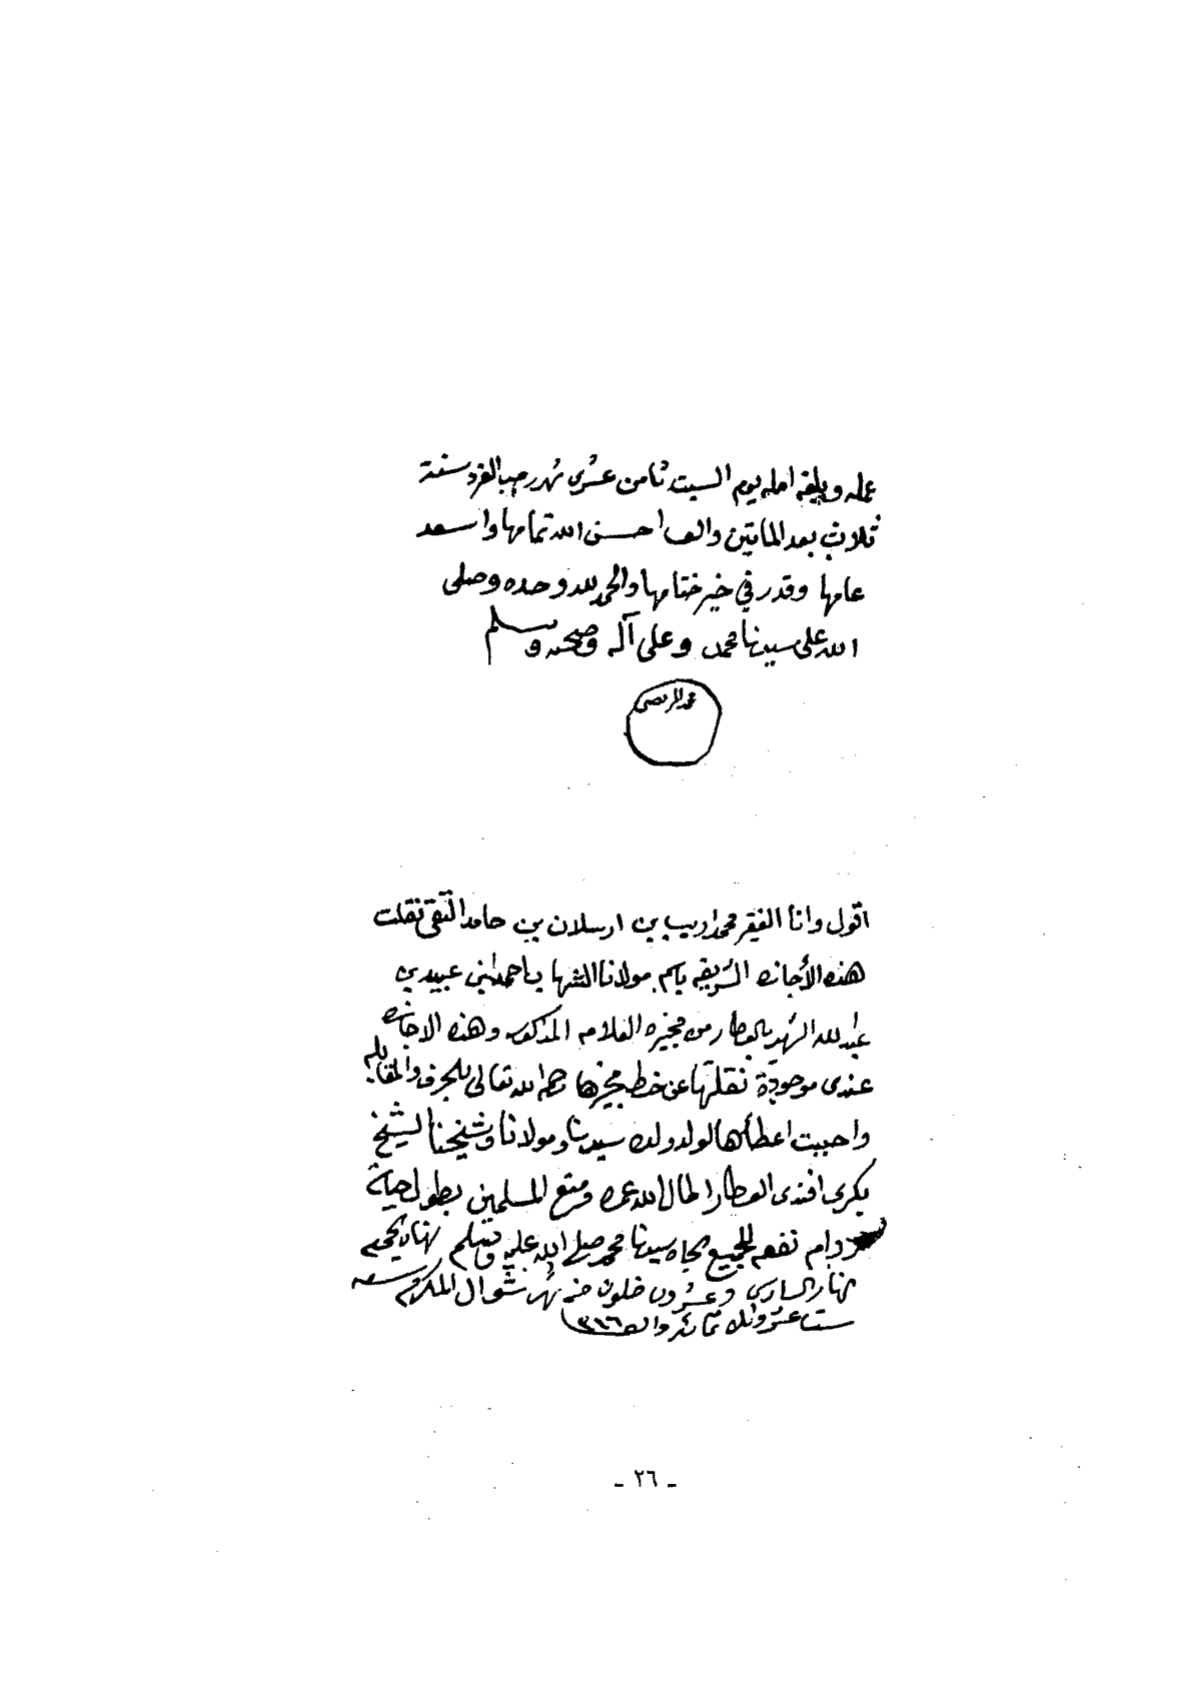 عمله وبلغه امله يوم السبت ثامن عشري شهر رجب الفرد سنة
ثلاث بعد المائتين والف احسن الله تمامها واسعد
عامها وقدر في خير ختامها والحمد لله وحده وصلى
الله على سيدنا محمد وعلى آله وصحبه وسلم
محمد المرتضى
اقول وانا الفقير محمد اديب بن ارسلان بن حامد التقى نقلت
هذه الأجازه الشريفه باسم مولانا الشهاب احمد بن عبيد بن
عبد الله الشهير بالعطار من مجيزه العلامه المذكور وهذه الاجازه
عندى موجودة نقلتها عن خط مجيزها رحمه الله تعالى بالحرف والمقابله
واحببت اعطاءها لولد ولده سيدنا ومولانا وشيخنا الشيخ
بكرى افندى العطار اطال الله عمره ومتع المسلمين بطول حياته
ودام نفعه للجميع بجاه سيدنا محمد صلى الله عليه وسلم
نهار السادس وعشرون خلون من شهر شوال المكرم سنه
ست عشر وثلاثمائه والف ١٣١٦
- ٢٦ -